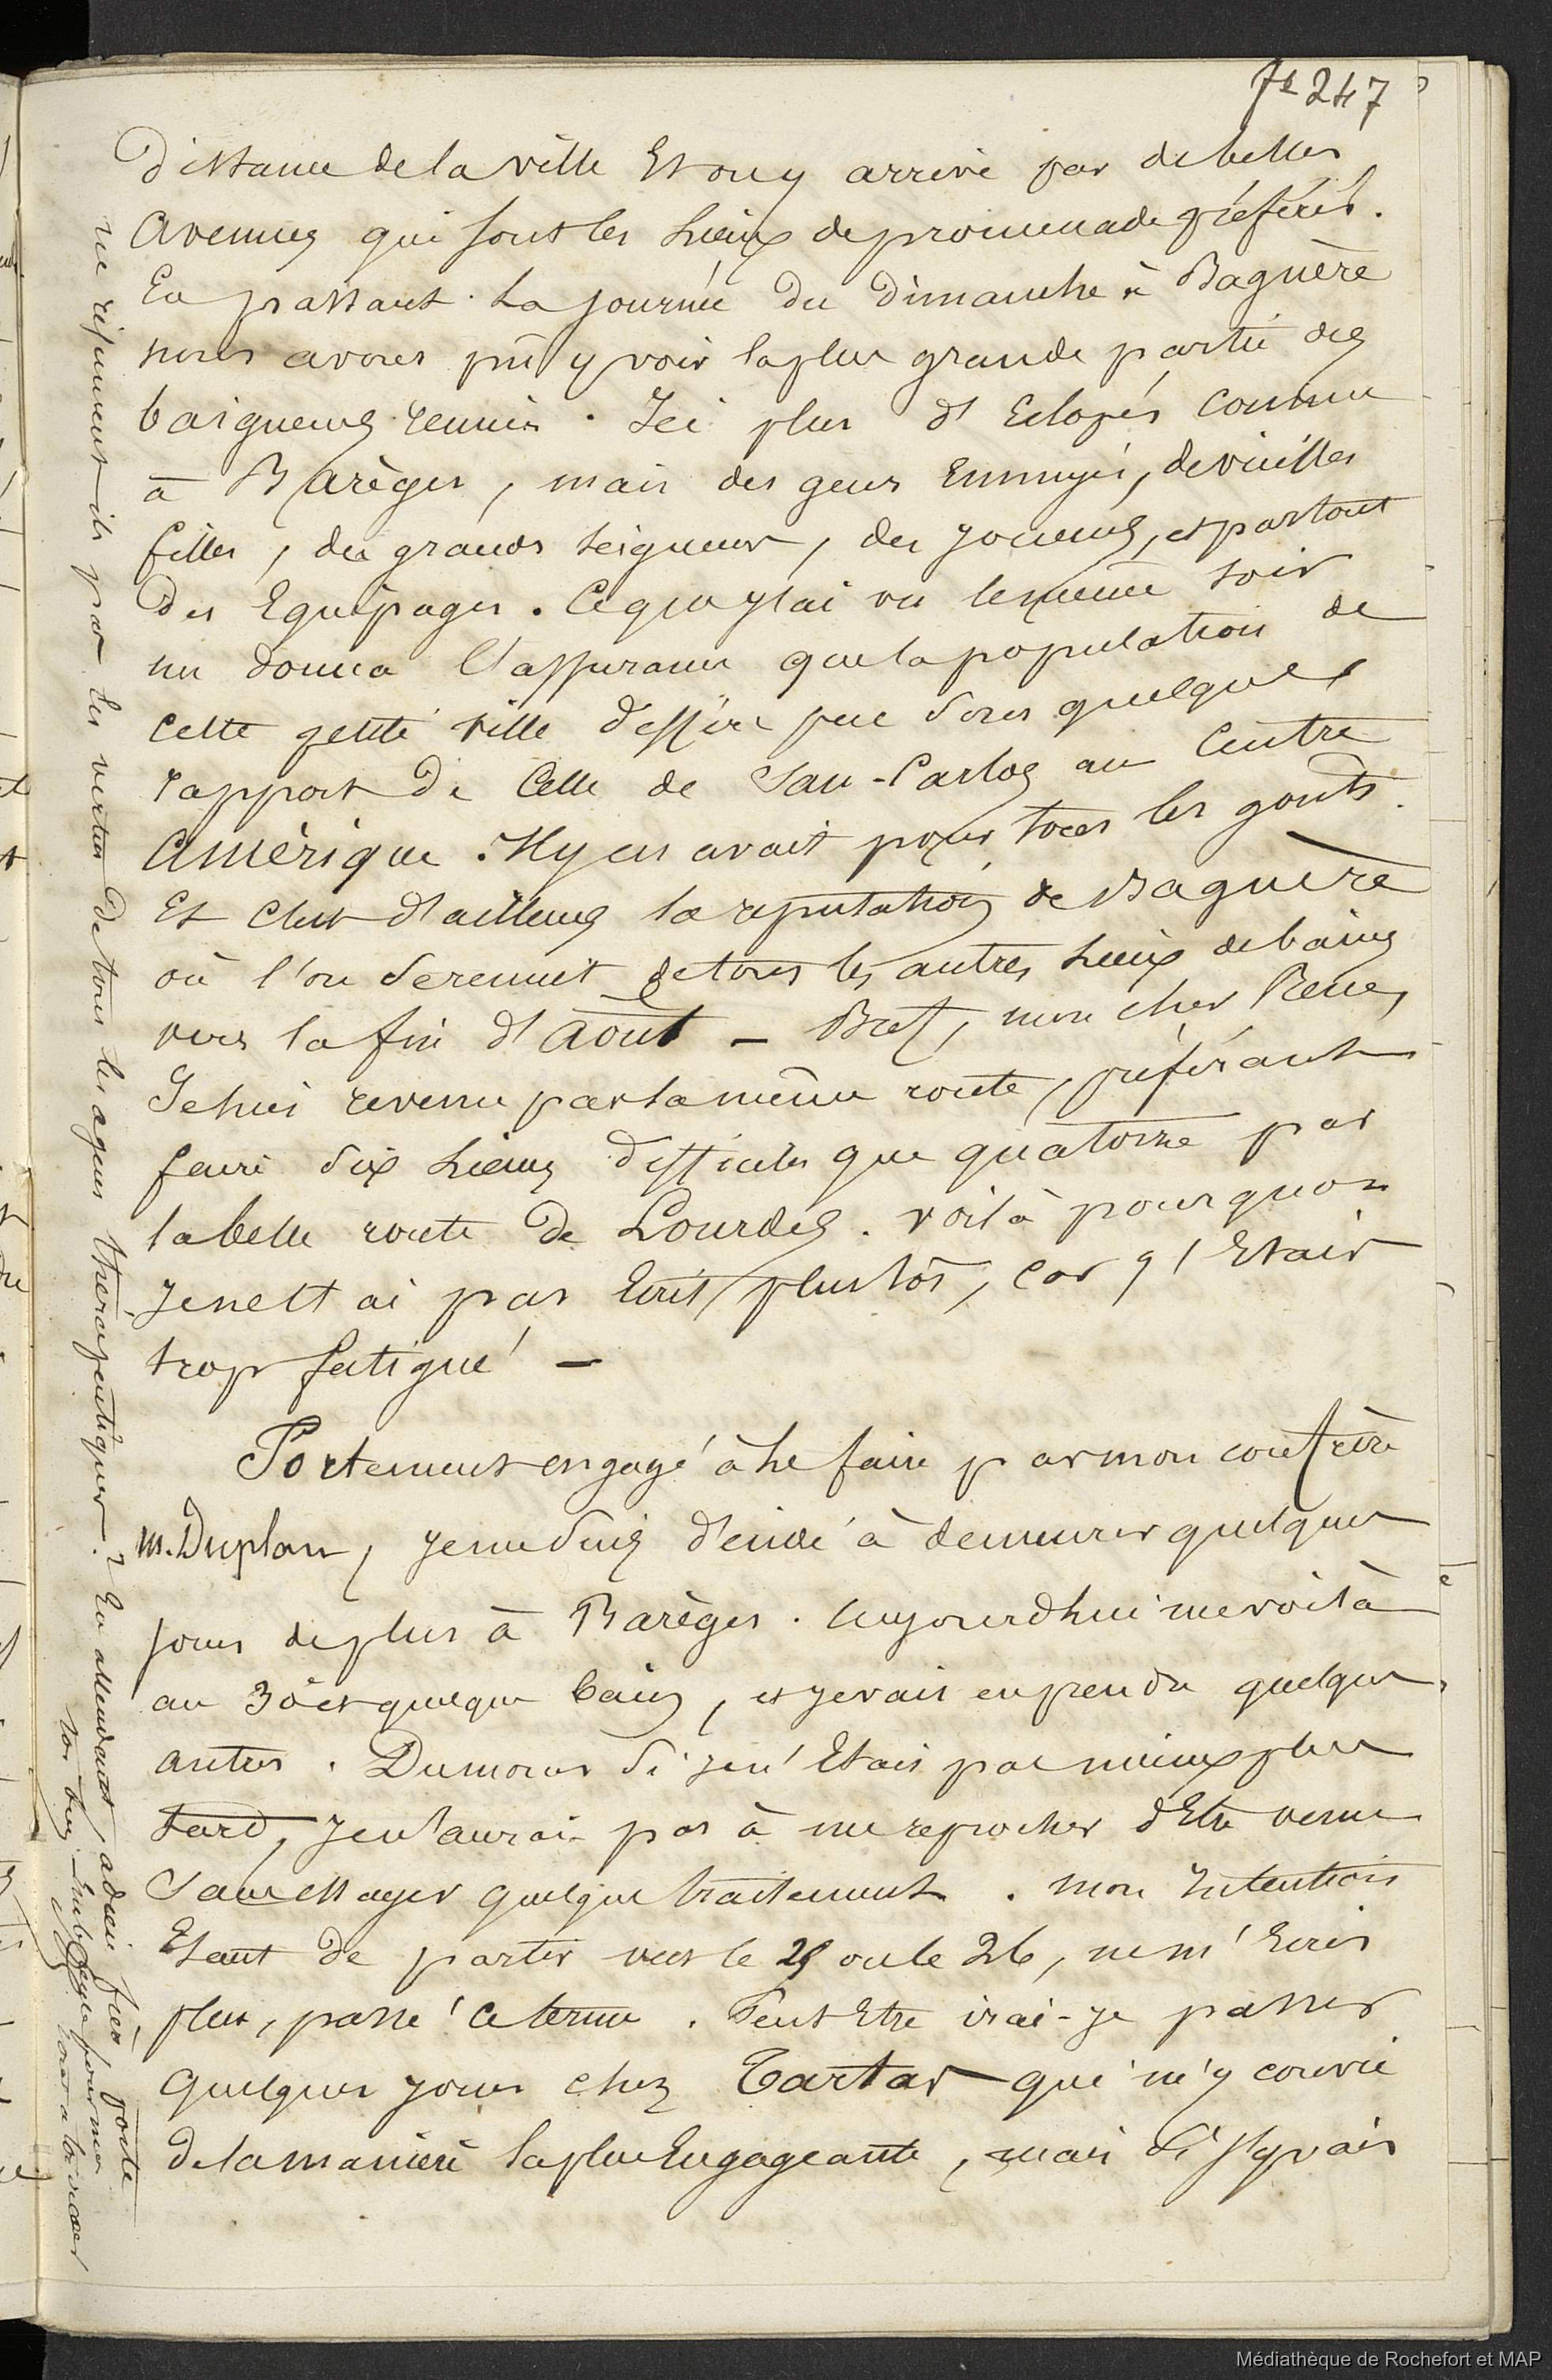 fo 247
distance de la ville Et ou y arrive par de belles
avenues qui sont les Lieux de promenade préférés.
En passant la journée du Dimanche à Bagnère
nous avons pû y voir la plus grande partie des
baigneurs reunis. Ici plus d'Eclopés comme
à Barèges, mais des gens Ennuyés, de vieilles
filles, de grands seigneurs, des joueurs, et partout
des Equipages. Ce que j'y ai vu le même soir
me donna l'assurance que la population de
cette petite ville diffère peu sous quelques
rapport de Celle de San-Carlos au Centre
Amérique. Il y en avait pour tous les gouts.
Et c'est d'ailleurs la reputation de Bagnère
où l'on se reunit de tous les autres Lieux de bains
vers la fin d'Août – Bref, mon cher Rene,
Je suis revenu par la même route, préférant
faire dix Lieues difficiles que quatorze par
la belle route de Lourdes. voilà pourquoi
je ne t'ai pas Ecrit plus tôt, car j'Etais
trop fatigué –
Fortement engagé à le faire par mon confrère
m. Duplan, je me suis décidé à demeurer quelques
jours de plus à Barèges. Aujourdhui me voilà
au 30 et quelque bain, et je vais en prendre quelques
autres. Du moins si je n'Etais pas mieux plus
tard, je n'aurai pas à me reprocher d'Etre venu
sans essayer quelque traitement. mon Intention
Etant de partir vers le 25 ou le 26, ne m'Ecris
plus, passé ce terme. Peut Etre irai-je passer
quelques jours chez Tartas qui m'y convie
de la manière la plus Engageante, mais si j'y vais
me réjouirent-ils par les vertus de tous les agens thérapeutiques? En attendant, adieu
ton